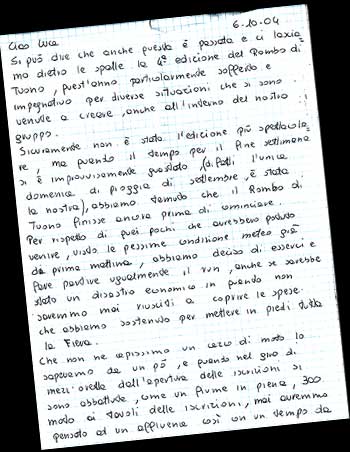 6-10-04
Ciao Luca
Si può dire che anche questa è passata e ci lascia=
mo dietro le spalle la 4ª edizione del Rombo di
Tuono, quest'anno particolarmente sofferto e
impegnativo per diverse situazioni che si sono
venute a creare, anche all'interno del nostro
gruppo.
Sicuramente non è stata l'edizione più spettacola=
re, ma quando il tempo per il fine settimana
si è improvvisamente guastato, (di fatti l'unica
domenica di pioggia di settembre, è stata
la nostra), abbiamo temuto che il Rombo di
Tuono finisse ancora prima di cominciare.
Per rispetto di quei pochi che avrebbero potuto
venire, viste le pessime condizione meteo già
da prima mattina, abbiamo deciso di esserci e
fare partire ugualmente il run, anche se sarebbe
stato un disastro economico in quando non
saremmo mai riusciti a coprire le spese
che abbiamo sostenuto per mettere in piedi tutta
la Fiera.
Che non ne capissimo un cazzo di moto lo
sapevamo da un pò, e quando nel giro di
mezz'oretta dall'apertura delle iscrizioni si
sono abbattute, come un fiume in piena, 300
moto ai tavoli delle iscrizioni, mai avremmo
pensato ad un affluenza così con un tempo da